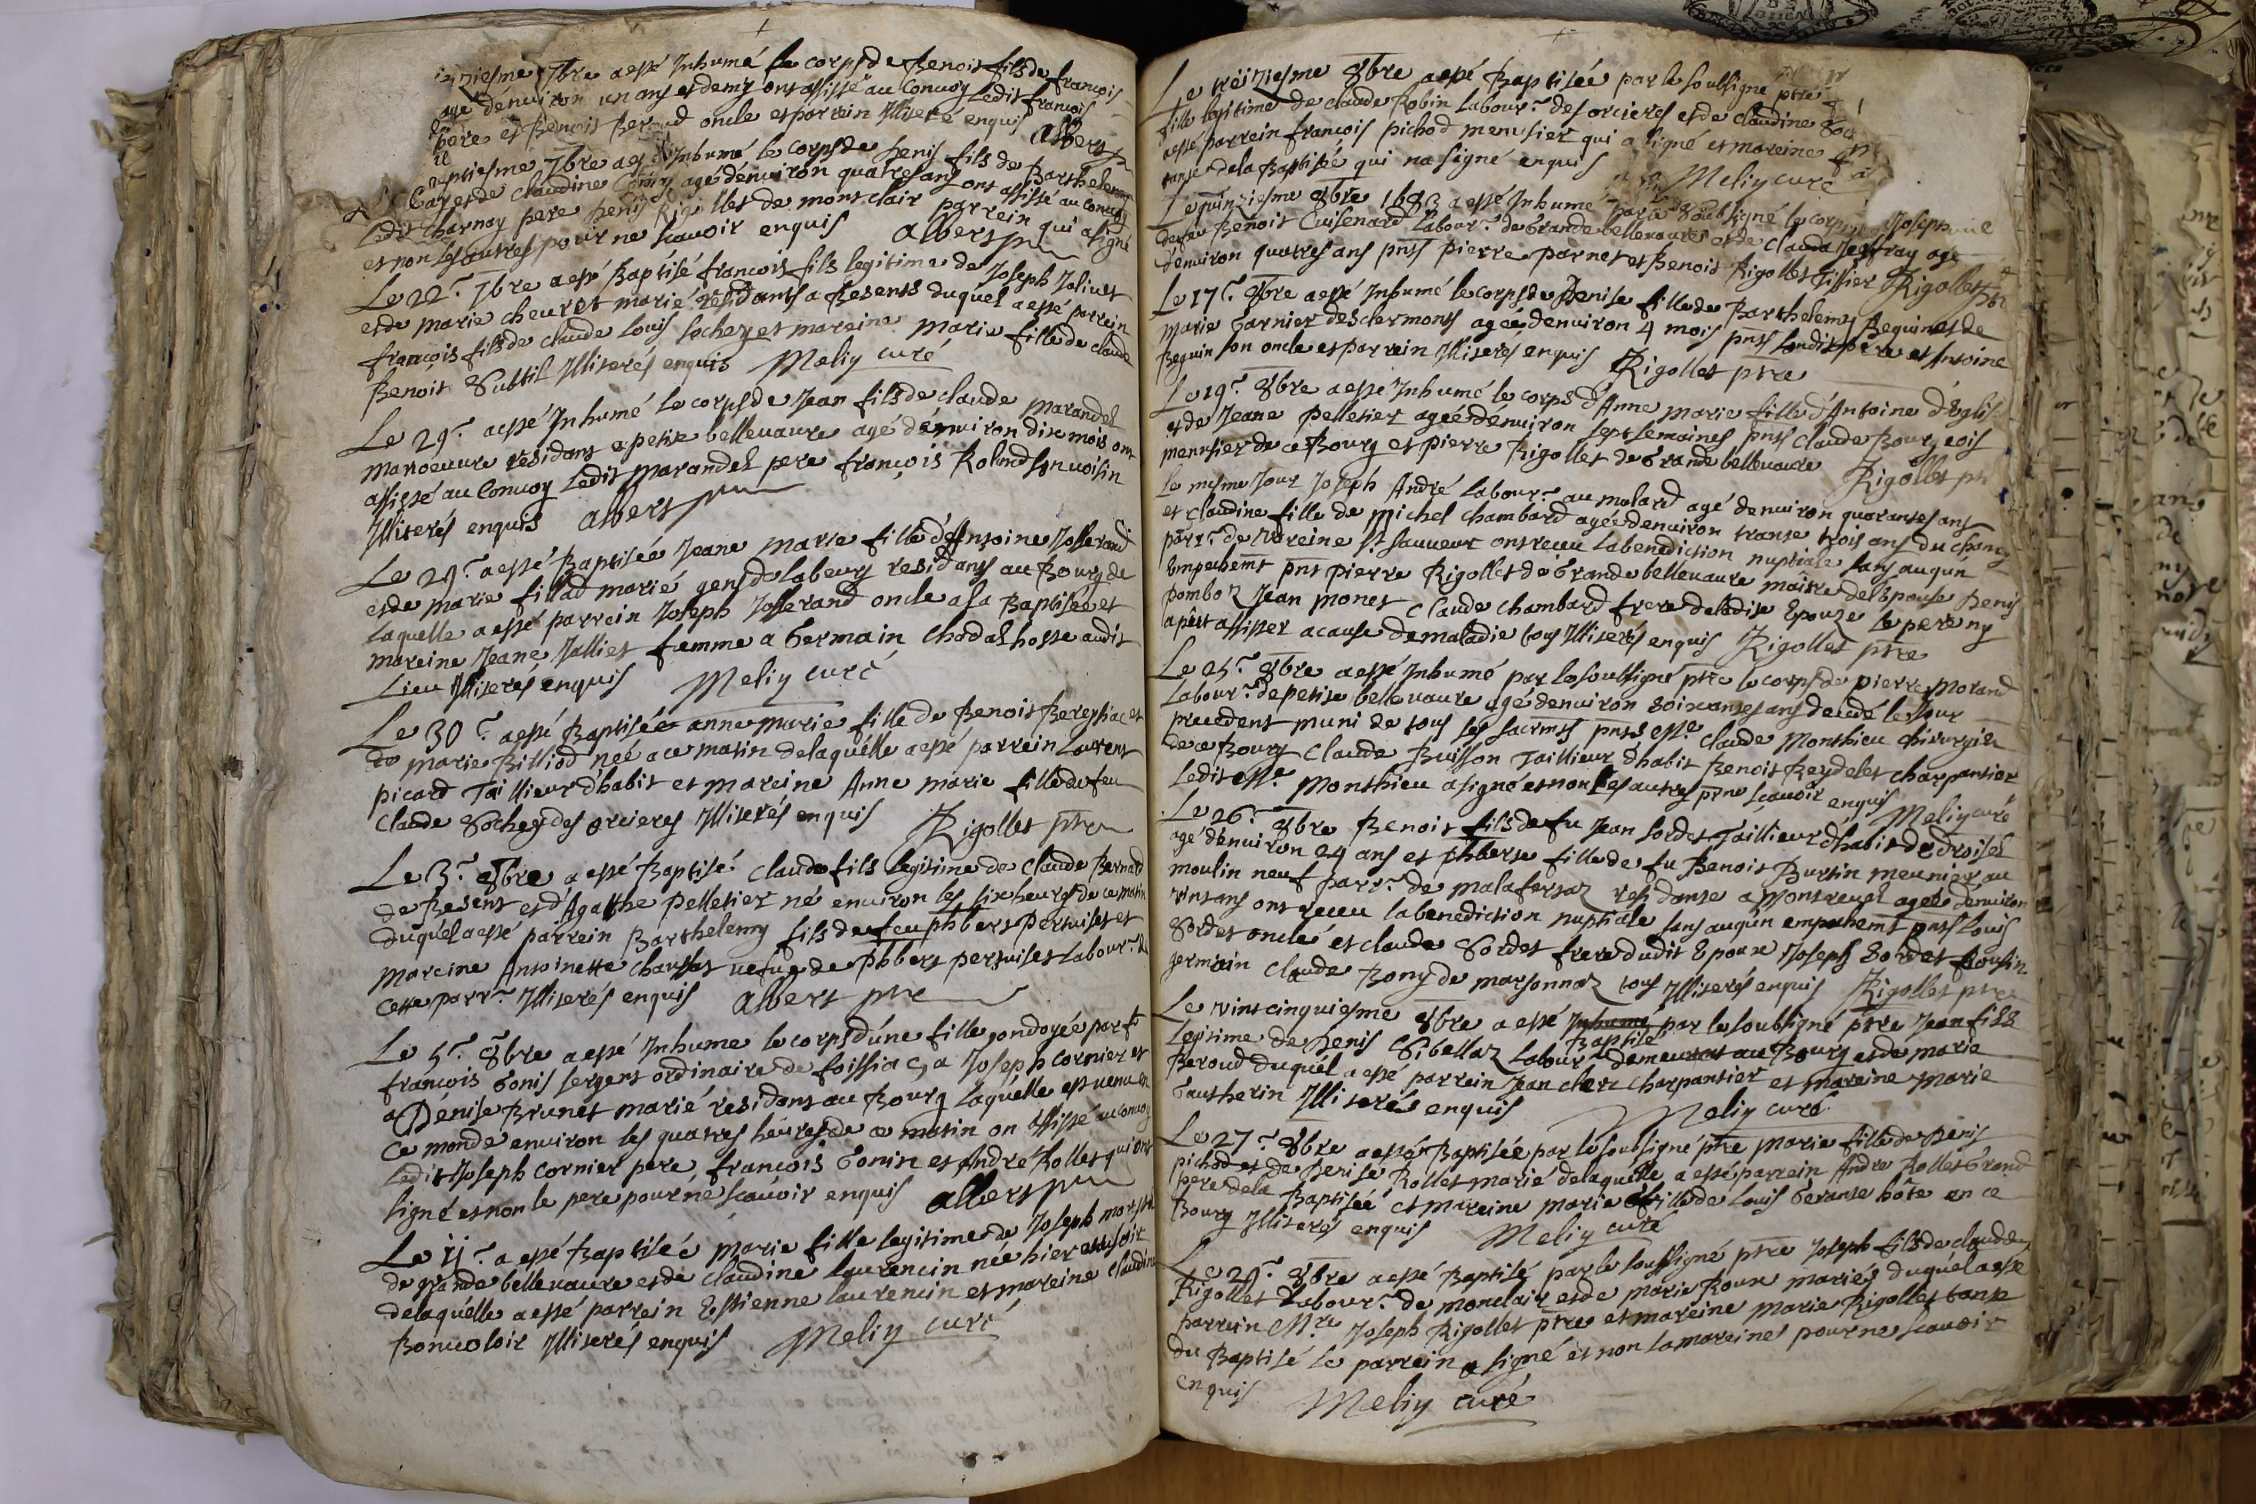 7bre a esté Inhumé le corps de Benoit fils de françois
agé d'enuiron un ans et demy ont assisté au Conuoy ledit françois
pere et Benois Beroud oncle et parrein Illiteré enquis Albert ptre
7bre a esté Inhumé le corps de Denis fils de Barthelemy
et de Claudine agé d'enuiron quatres ans ont assisté au conuoy
ledit Charnay pere Denis Rigollet de mont clair parrein qui a signé
et non les autres pour ne scauoir enquis Albert ptre
Le 22e. 7bre a esté Baptisé francois fils legitime de Joseph Joliuet
et de marie cheuret marié residants a Besents duquel a esté parrein
françois fils de claude louis sochey et mareine marie fille de claude
Benoit Subtil Illiterés enquis Meliy curé
Le 29e. a esté Inhumé le corps de Jean fils de claude marandet
manoeuure residant a petite belleuaure agé d'enuiron dix mois ont
assisté au Conuoy ledit marandet pere françois Rolind son uoisin
Illiterés enquis albert ptre
Le 29e. a esté Baptisée Jeane marie fille d'Antoine Josserand
et de marie fillad marié gens de labeurs residans au Bourg de
laquelle a esté parrein Joseph Josserand oncle a la Baptisée et
mareine Jeane Jolliet femme a Germain Chodat hoste audit
Lieu Illiterés enquis Meliy curé
Le 30e. a esté Baptisée anne marie fille de Benoit Bereysiat et
de marie Billiod née a ce matin de laquelle a esté parrein Laurent
picard Taillieur d'habit et mareine Anne marie fille de feu
Claude Sochey des orcieres Illiterés enquis Rigollet ptre
Le 3e. 8bre a esté Baptisé Claude fils legitime de Claude Bernard
de Besent et d'Agathe Pelletier né enuiron les six heures de ce matin
duquel a esté parrein Barthelemy fils de feu phbert peruiset et
mareine Antoinette Chaussat uefue de phbert peruiset labour.r de
cette parr.e Illiterés enquis albert ptre
Le 5e. 8bre a esté Inhume le corps d'une fille ondoyée par
françois Gonis sergent ordinaire de foissiac, a Joseph cornier et
a Denise Brunet marié residant au Bourg laquelle est uenu en
ce monde enuiron les quatres heures de ce matin on assisté au conuoy
ledit Joseph cornier pere françois Gonin et André Rollet qui ont
signé et non le pere pour ne scauoir enquis albert ptre
Le ij.e a esté Baptisée marie fille legitime de Joseph
de grande belleuaure et de claudine laurencin née hier au soir
de laquelle a esté parrein Estienne laurencin et mareine claudine
Bonuoloir Illiterés enquis Meliy curé
Le treiziesme 8bre a esté Baptisée par le soubsigne ptre
fille legitime de claude Robin labour.r des orcieres et de claudine
a esté parrein francois pichod menusier qui a signé et mareine
tante de la Baptisée qui na signé enquis Meliy curé
Le quinziesme 8bre 1683 a esté Inhume par le soubsigné le corps Joseph
de feu Benoit Cuisenard labour.r de Grande belleuaure et de Clauda Jeoffray agé
d'enuiron quatres ans pnts pierre parnet et Benoit Rigollet Tissier Rigollet ptre
Le 17e. 8bre a esté Inhumé le corps de Denise fille de Barthelemy Beguin et de
marie Garnier des clermonts agée d'enuiron 4 mois pnts ledit pere et Antoine
Beguin son oncle et parrein Illiterés enquis Rigollet ptre
Le 19e. 8bre a esté Inhumé le corps d'Anne marie fille d'Antoine d'Eglise
et de Jeane pelletier ageé d'enuiron sept semaines pnts claude Bourgeois
menusier de ce Bourg et pierre Rigollet de Grande belleuaure Rigollet ptre
Le mesme Jour Joseph André labour.r au molard agé d'enuiron quarantes ans
et claudine fille de michel chambard agée d'enuiron trante trois ans du champ
parr.e de uareine st. sauueur ont receu la benediction nuptiale sans augun
Empechemt pnt pierre Rigollet de Grande belleuaure maitre de l'Epouse Denis
pomboz Jean monet claude chambard frere de ladite Epouze le pere ny
a peut assister a cause de maladie tous Illiterés enquis Rigollet ptre
Le 25e. 8bre a esté Inhumé par le soubsigné ptre le corps de pierre morand
labour.r de petite belleuaure agé d'enuiron soixantes ans decedé le Jour
precedent muni de tous les sacrmts pnts esse claude Monthieu chirurgien
de ce Bourg claude Buisson Taillieur d'habit Benoit Reydelet charpantier
ledit esse Monthieu a signé et non les autres pr ne scauoir enquis Meliy curé
Le 26e. 8bre Benoit fils de fu Jean sordet Taillieur d'habit de
agé d'enuiron 24 ans et phberte fille de fu Benoit Burtin meunier au
moulin neuf parr.e de malafertaz residante a montreuel agée d'enuiron
uint ans ont receu la benediction nuptiale sans augun empechemt pnts louis
Sordet oncle et claude Sordet frere dudit Epoux Joseph Sordet cousin
germain claude Bony de marsonnaz tous Illiterés enquis Rigollet ptre
Le vint cinquiesme 8bre a esté Inhumé par le soubsigné ptre Jean fils
Baptisé
legitime de Denis Sibellaz labour.r demeurant au Bourg et de marie
Beroud duquel a esté parrein Jean clerc charpantier et mareine marie
Gautherin Illiterés enquis Meliy curé
Le 27e. 8bre a esté Baptisée par le soubsigné ptre marie fille de Denis
pichod et de Denise Rollet marié de laquelle a esté parrein André Rollet Grand
pere de la Baptisée et mareine marie fille de louis Gerante hôte en ce
Bourg Illiterés enquis Meliy curé
Le 29e. 8bre a esté Baptisé par le soubsigné ptre Joseph fils de claude
Rigollet labour.r de monclair et de marie Roux mariés duquel a esté
parrein Mre Joseph Rigollet ptre et mareine marie Rigollet tante
du Baptisé le parrein a signé et non la mareine pour ne scauoir
enquis Meliy curé